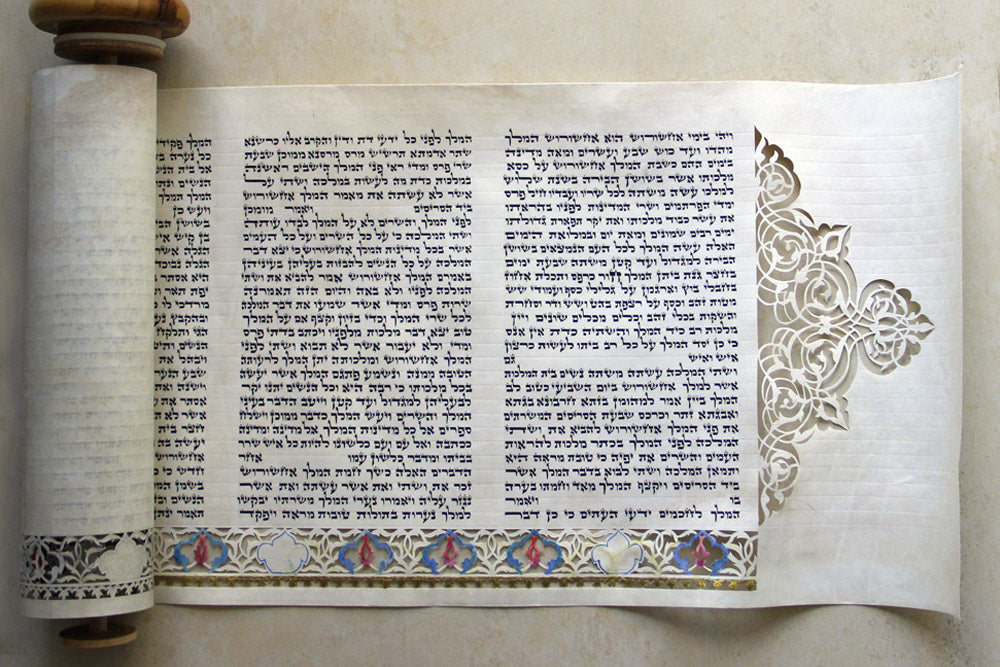 ויהי בימי אחשורוש הוא אחשורוש המלך
מהדו ועד כוש שבע ועשרים ומאה מדינה
בימים ההם כשבת המלך אחשורוש על כסא
מלכותו אשר בשושן הבירה בשנת שלוש
למלכו עשה משתה לכל שריו ועבדיו חיל פרס
ומדי הפרתמים ושרי המדינות לפניו בהראתו
את עשר כבוד מלכותו ואת יקר תפארת גדולתו
ימים רבים שמונים ומאת יום ובמלואת הימים
האלה עשה המלך לכל העם הנמצאים בשושן
הבירה למגדול ועד קטן משתה שבעת ימים
בחצר גנת ביתן המלך חור כרפס ותכלת אחוז
בחבלי בוץ וארגמן על גלילי כסף ועמודי שש
מטות זהב וכסף על רצפת בהט ושש ודר וסחרת
והשקות בכלי זהב וכלים מכלים שונים ויין
מלכות רב כיד המלך והשתיה כדת אין אנס
כי כן יסד המלך על כל רב ביתו לעשות כרצון
איש ואיש גם
ושתי המלכה עשתה משתה נשים בית המלכות
אשר למלך אחשורוש ביום השביעי כטוב לב
המלך ביין אמר למהומן בזתא חרבונא בגתא
ואבגתא זתר וכרכס שבעת הסריסים המשרתים
את פני המלך אחשורוש להביא את ושתי
המלכה לפני המלך בכתר מלכות להראות
העמים והשרים את יפיה כי טובת מראה היא
ותמאן המלכה ושתי לבוא בדבר המלך אשר
ביד הסריסים ויקצף המלך מאד וחמתו בערה
בו ויאמר
המלך לחכמים ידעי העתים כי כן דבר
המלך לפני כל ידעי דת ודין והקרב אליו כרשנא
שתר אדמתא תרשיש מרס מרסנא ממוכן שבעת
שרי פרס ומדי ראי פני המלך הישבים ראשנה
במלכות כדת מה לעשות במלכה ושתי על
אשר לא עשתה את מאמר המלך אחשורוש
ביד הסריסים ויאמר מומכן
לפני המלך והשרים לא על המלך לבדו עותה
ושתי המלכה כי על כל השרים ועל כל העמים
אשר בכל מדינות המלך אחשורוש כי יצא דבר
המלכה על כל הנשים להבזות בעליהן בעיניהן
באמרם המלך אחשורוש אמר להביא את ושתי
המלכה לפניו ולא באה והיום הזה תאמרנה
שרות פרס ומדי אשר שמעו את דבר המלכה
לכל שרי המלך וכדי בזיון וקצף אם על המלך
טוב יצא דבר מלכות מלפניו ויכתב בדתי פרס
ומדי ולא יעבור אשר לא תבוא ושתי לפני
המלך אחשורוש ומלכותה יתן המלך לרעותה
הטובה ממנה ונשמע פתגם המלך אשר יעשה
בכל מלכותו כי רבה היא וכל הנשים יתנו יקר
לבעליהן למגדול ועד קטן וייטב הדבר בעיני
המלך והשרים ויעש המלך כדבר ממוכן וישלח
ספרים אל כל מדינות המלך אל מדינה ומדינה
ככתבה ואל עם ועם כלשונו להיות כל איש שרר
בביתו ומדבר כלשון עמו אחר
הדברים האלה כשך חמת המלך אחשורוש
זכר את ושתי ואת אשר עשתה ואת אשר
נגזר עליה ויאמרו נערי המלך משרתיו יבקשו
למלך נערות בתולות טובות מראה ויפקד
המלך פקידים
כל נערה
אל בית
הנשים
המלך
ויעש כן
בשושן
בן קיש איש
הגלה אשר
הגלה
היא אסתר
יפת תאר
מרדכי לו
ובהקבץ
הגי ותלקח
ויבהל את
שבע
וישנה ואת
אסתר את
אשר לא
חצר בית
יעשה בה
חדשי כי
הנשים
האמר